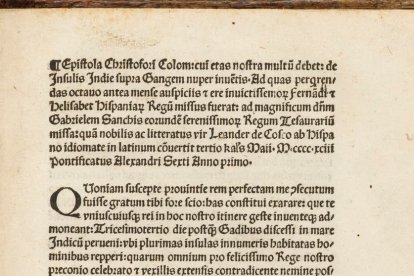 ¶Epistola Christofori Colom: cui etas nostra multũ debet: de
Insulis Indie supra Gangem nuper inuẽtis. Ad quas perqren-
das octauo antea mense auspiciis ⁊ ere inuictissimoꝝ Fernãdi ⁊
Helisabet Hispaniaꝝ Regũ missus fuerat: ad magnificum dñm
Gabrielem Sanchis eorundẽ serenissimoꝝ Regum Tesaurariũ
missa: quã nobilis ac litteratus vir Leander de Cosco ab Hispa
no idiomate in latinum cõuertit tertio kaľs Maii. M.cccc.xciii
Pontificatus Alexandri Sexti Anno primo.
QUoniam suscepte prouintie rem perfectam me ꝯsecutum
fuisse gratum tibi fore scio: has constitui exarare: que te
vniuscuiusqꝫ rei in hoc nostro itinere geste inuenteqꝫ ad-
moneant: Tricesimotertio die postqꝫ Gadibus discessi in mare
Indicũ perueni: vbi plurimas insulas innumeris habitatas ho-
minibus repperi: quarum omnium pro felicissimo Rege nostro
preconio celebrato ⁊ vexillis extensis contradicente nemine pos-